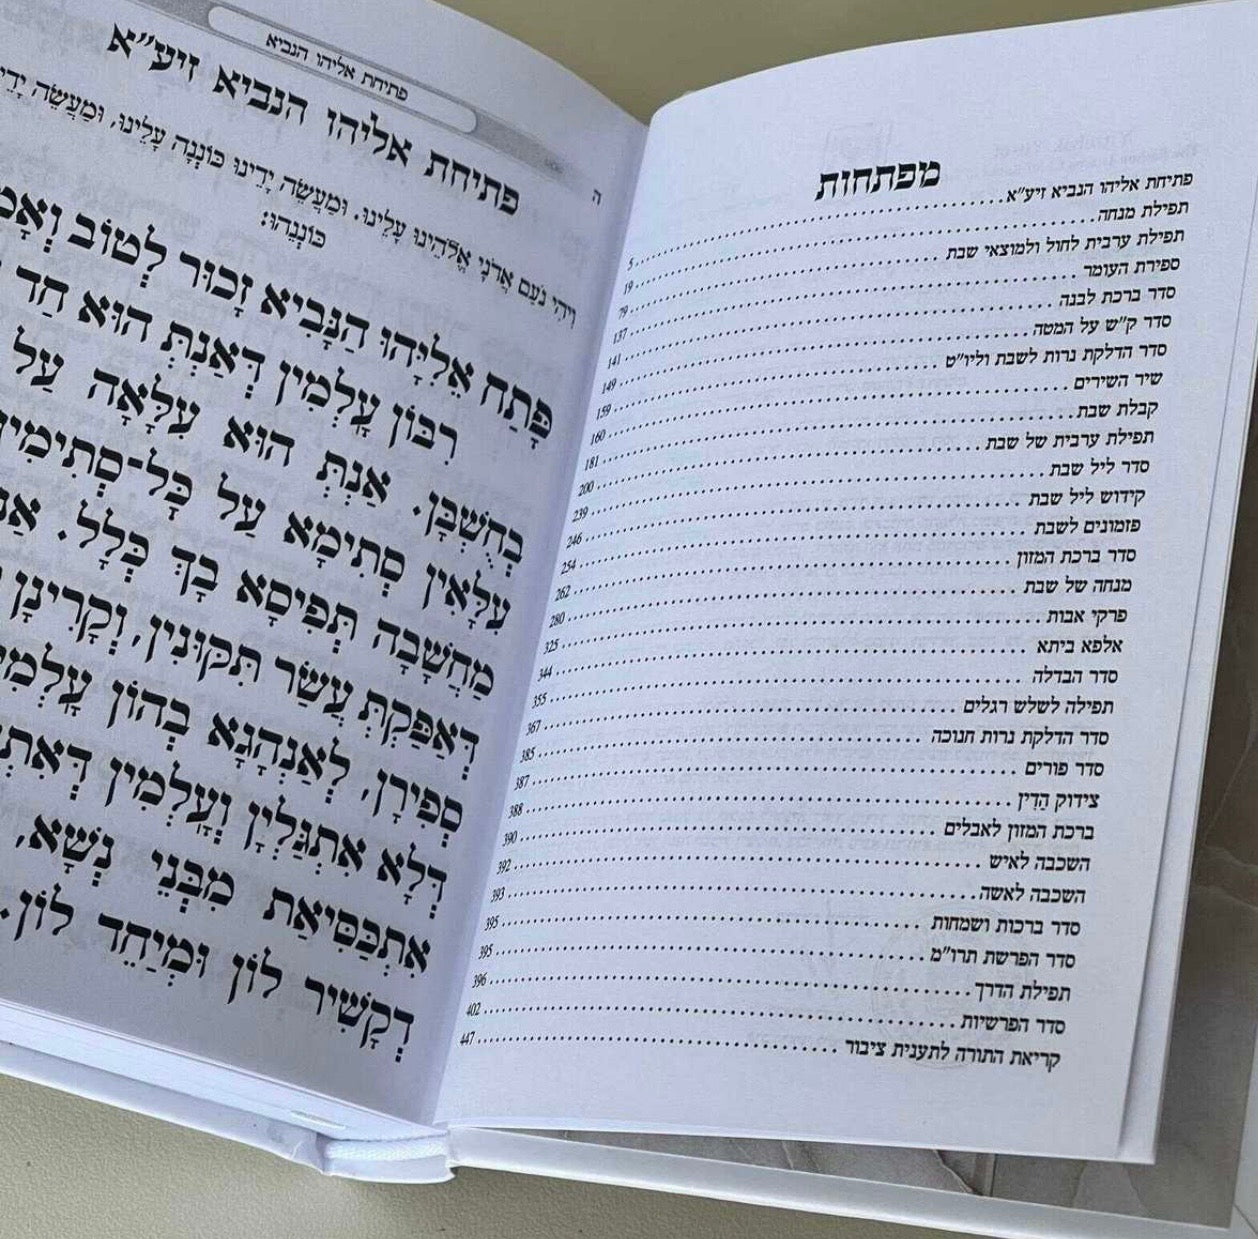 מפתחות
פתיחת אליהו הנביא זיע"א 5
תפילת מנחה 19
תפילת ערבית לחול ולמוצאי שבת 79
ספירת העומר 137
סדר ברכת לבנה 141
סדר ק"ש על המטה 149
סדר הדלקת נרות לשבת וליו"ט 159
שיר השירים 160
קבלת שבת 181
תפילת ערבית של שבת 200
סדר ליל שבת 239
קידוש ליל שבת 246
פזמונים לשבת 254
סדר ברכת המזון 262
מנחה של שבת 280
פרקי אבות 325
אלפא ביתא 344
סדר הבדלה 355
תפילה לשלש רגלים 367
סדר הדלקת נרות חנוכה 385
סדר פורים 387
צידוק הַדִּין 388
ברכת המזון לאבלים 390
השכבה לאיש 392
השכבה לאשה 393
סדר ברכות ושמחות 395
סדר הפרשת תרו"מ 395
תפילת הדרך 396
סדר הפרשיות 402
קריאת התורה לתענית ציבור 447
פתיחת אליהו הנביא
ה
פתיחת אליהו הנביא זיע"א
וִיהִי נֹעַם אֲדֹנָי אֱלֹהֵינוּ עָלֵינוּ. וּמַעֲשֵׂה יָדֵינוּ כּוֹנְנָה עָלֵינוּ, וּמַעֲשֵׂה
כּוֹנְנֵהוּ:
פָּתַח אֵלִיָּהוּ הַנָּבִיא זָכוּר לְטוֹב
רִבּוֹן עָלְמִין דְּאַנְתְּ הוּא חַד
בְּחֻשְׁבָּן. אַנְתְּ הוּא עִלָּאָה עַל
עִלָּאִין סְתִימָא עַל כָּל־סְתִימִין
מַחֲשָׁבָה תְּפִיסָא בָךְ כְּלָל.
דְּאַפַּקְתְּ עֲשַׂר תִּקּוּנִין, וְקָרִינָן
סְפִירָן, לְאַנְהָגָא בְהוֹן
דְּלָא אִתְגַּלְיָן וְעָלְמִין
אִתְכַּסִּיאַת מִבְּנֵי נְשָׁא,
דְקָשִׁיר לוֹן וּמְיַחֵד לוֹן.